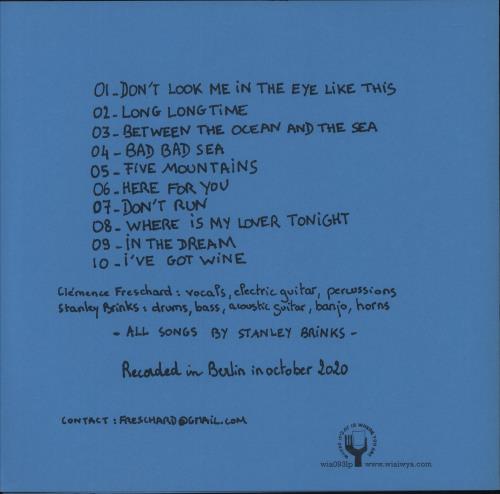 01_DON'T LOOK ME IN THE EYE LIKE THIS
02_LONG LONG TIME
03_BETWEEN THE OCEAN AND THE SEA
04_BAD BAD SEA
05_FIVE MOUNTAINS
06_HERE FOR YOU
07_DON'T RUN
08_WHERE IS MY LOVER TONIGHT
09_IN THE DREAM
10_I'VE GOT WINE
Clémence Freschard : vocals, electric guitar, percussions
Stanley Brinks : drums, bass, acoustic guitar, banjo, horns
- ALL SONGS BY STANLEY BRINKS -
Recorded in Berlin in october 2020
CONTACT : FRESCHARD@GMAIL.COM
WHERE IT'S AT IS WHERE YOU ARE
wia093lp www.wiaiwya.com